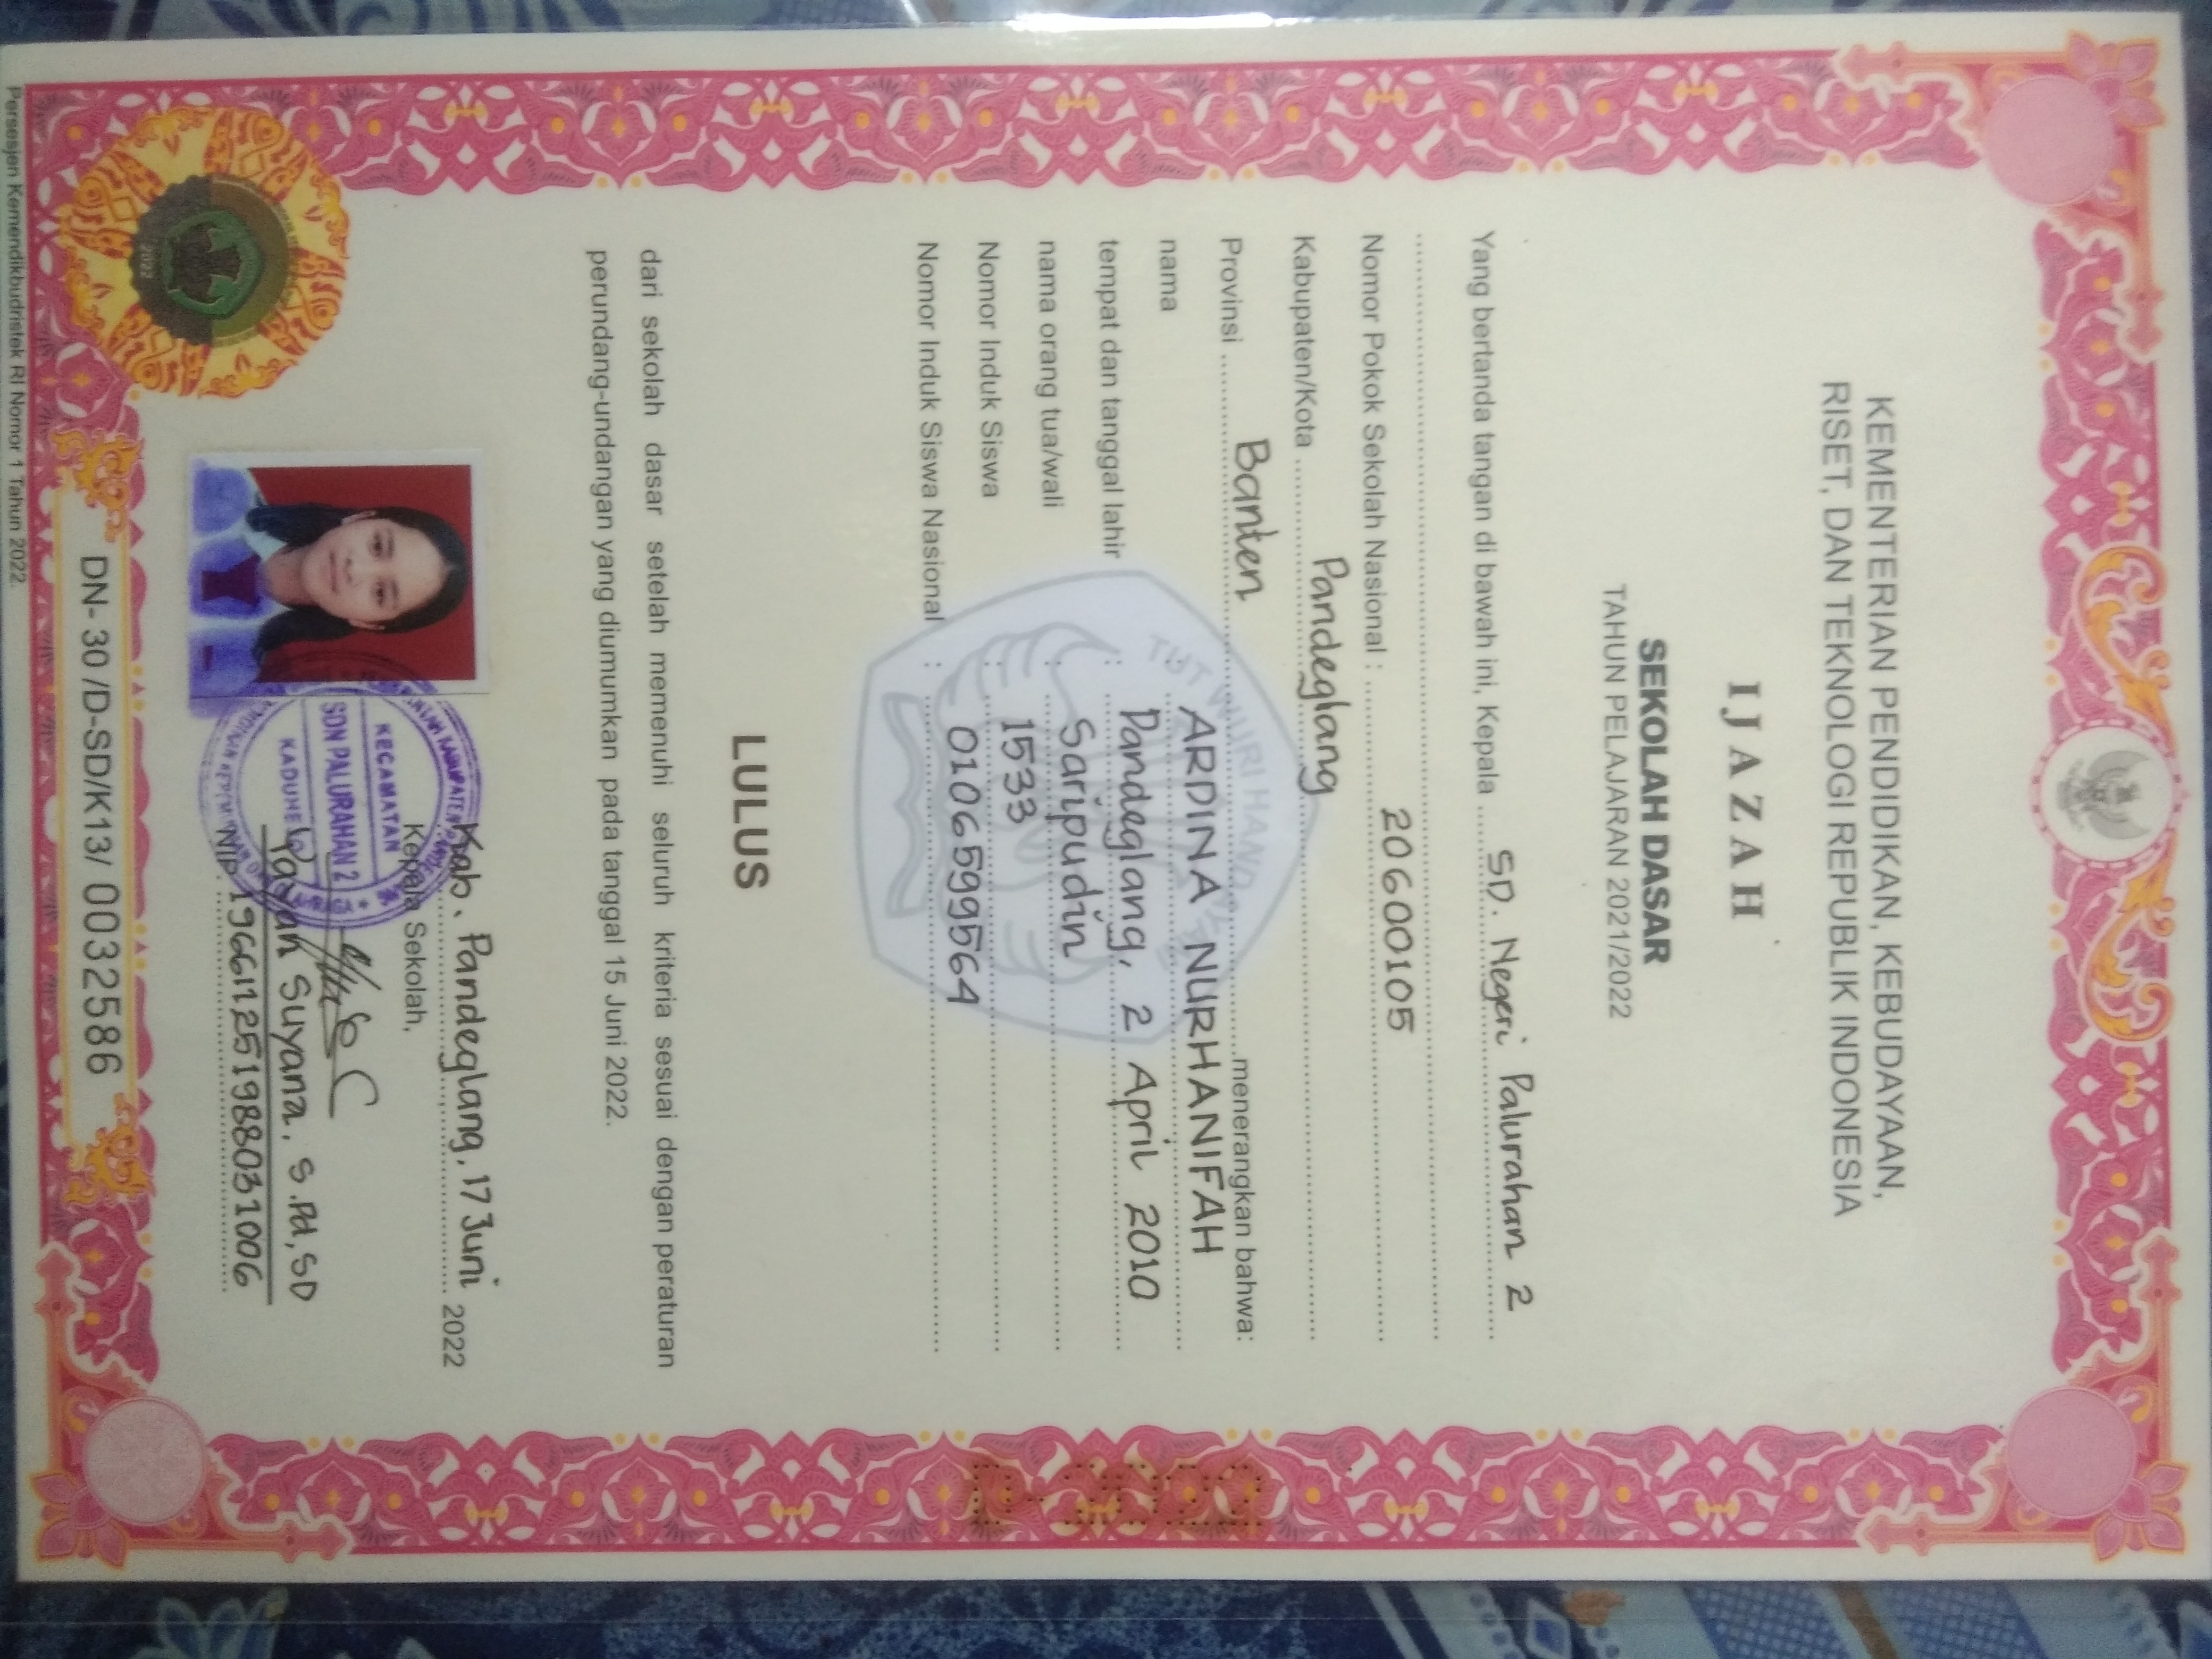 KEMENTERIAN PENDIDIKAN, KEBUDAYAAN,
RISET, DAN TEKNOLOGI REPUBLIK INDONESIA
IJAZAH
SEKOLAH DASAR
TAHUN PELAJARAN 2021/2022
Yang bertanda tangan di bawah ini, Kepala SD. Negeri Palurahan 2
Nomor Pokok Sekolah Nasional : 20600105
Kabupaten/Kota Pandeglang
Provinsi Banten menerangkan bahwa:
nama ARDINA NURHANIFAH
tempat dan tanggal lahir : Pandeglang, 2 April 2010
nama orang tua/wali : Saripudin
Nomor Induk Siswa : 1533
Nomor Induk Siswa Nasional : 0106599564
TUT WURI HANDAYANI
LULUS
dari sekolah dasar setelah memenuhi seluruh kriteria sesuai dengan peraturan
perundang-undangan yang diumumkan pada tanggal 15 Juni 2022.
Kab. Pandeglang, 17 Juni 2022
Kepala Sekolah,
KECAMATAN
SDN PALURAHAN 2
Suyana, S.Pd, SD
NIP 196611251988031006
2022
DN- 30 /D-SD/K13/ 0032586
Persesjen Kemendikbudristek RI Nomor 1 Tahun 2022.